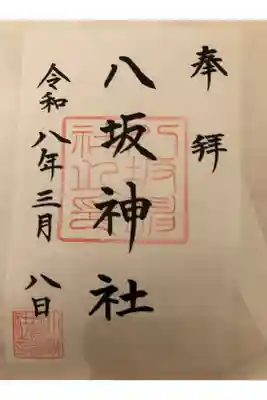 奉拝
八坂神社
令和八年三月八日